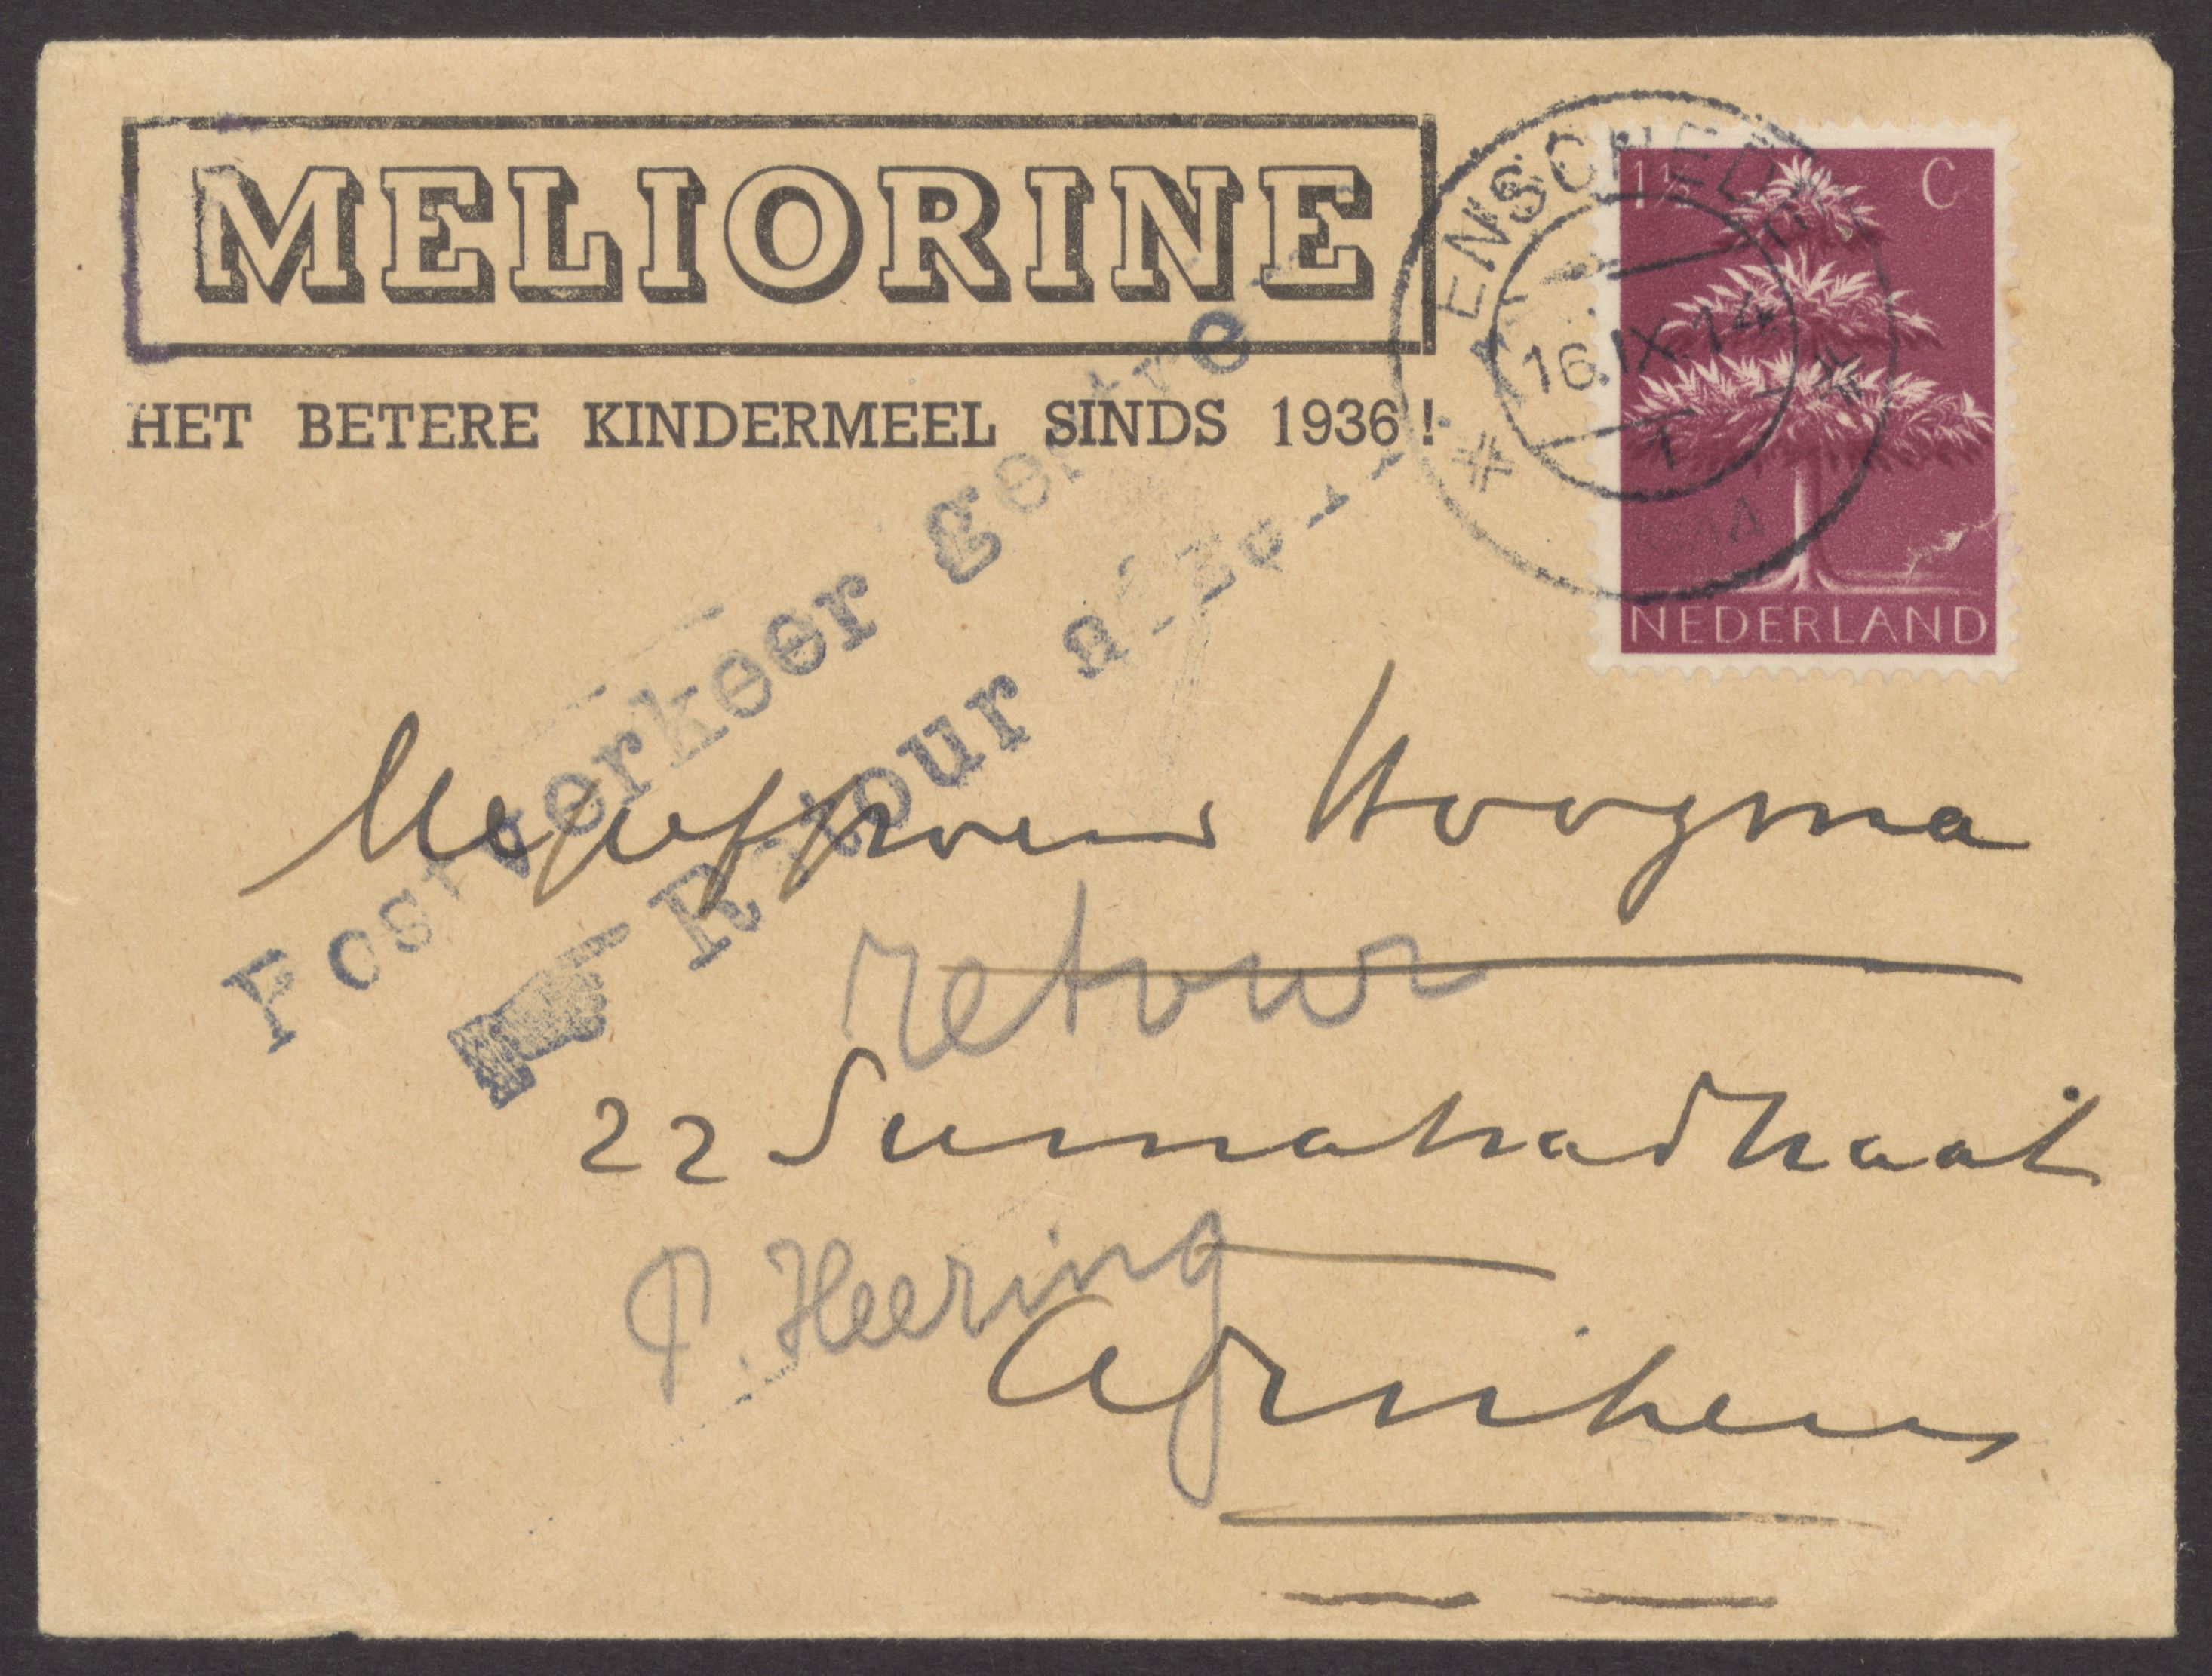 MELIORINE
HET BETERE KINDERMEEL SINDS 1936!
ENSCHEDE
16.IX.14
1½ C
NEDERLAND
Postverkeer
Retour
Mejuffrouw Hoogma
retour
22 Sumatrastraat
P. Heering
Arnhem